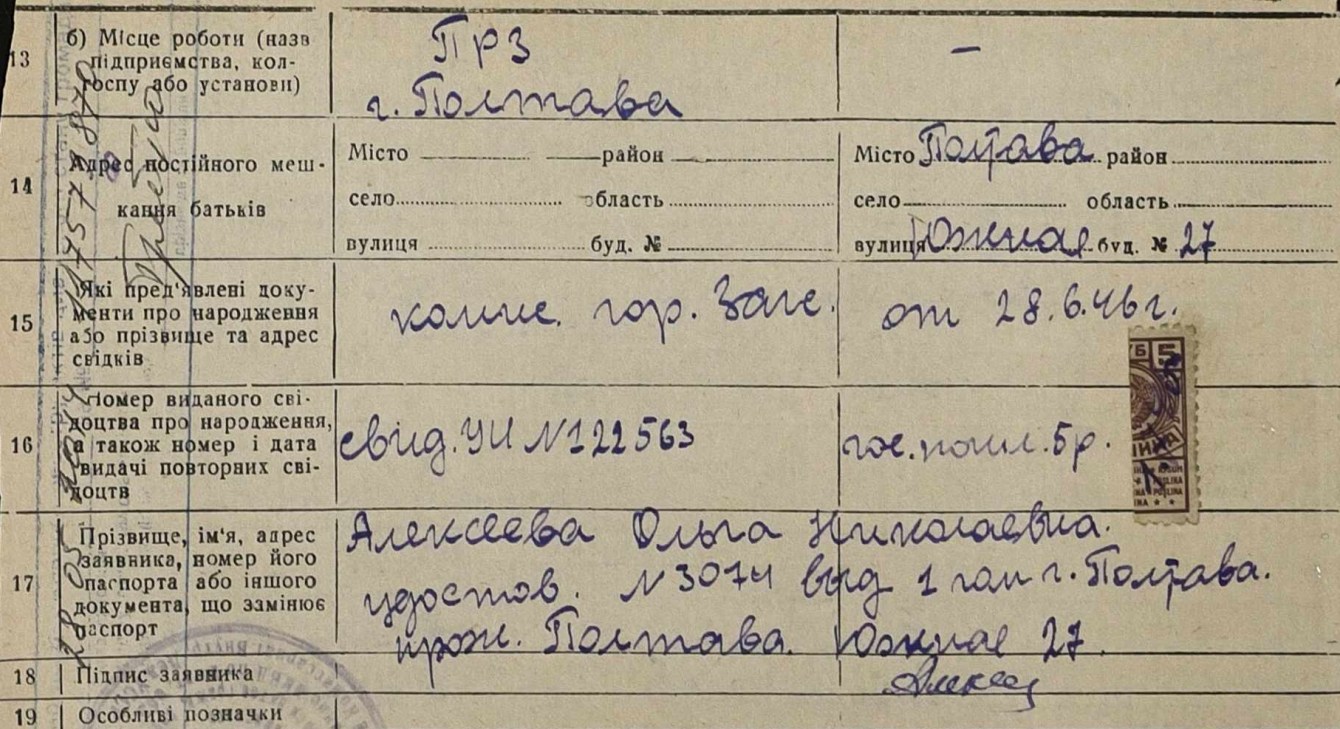 13
б) Місце роботи (назв
підприємства, кол-
госпу або установи)
ПРЗ
г. Полтава
–
14
Адрес постійного меш-
кання батьків
Місто район
село область
вулиця буд. №
Місто Полтава район
село область
вулиця Южная буд. № 27
15
Які пред'явлені доку-
менти про народження
або прізвище та адрес
свідків
комис. гор. Загс. от 28.6.46 г.
16
Номер виданого сві-
доцтва про народження,
а також номер і дата
видачі повторних сві-
доцтв
свид. УИ №122563
гос. пошл. 5р.
5
17
Прізвище, ім'я, адрес
заявника, номер його
паспорта або іншого
документа, що замінює
паспорт
Алексеева Ольга Николаевна.
удостов. №3074 выд 1 гом г. Полтава.
прож. Полтава. Южная 27.
18
Підпис заявника
Алексеев
19
Особливі позначки